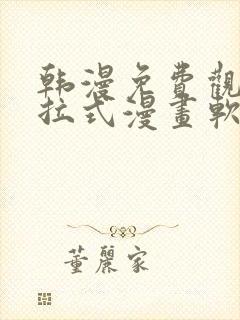 韩漫免費觀
拉式漫畫軟
董麗家